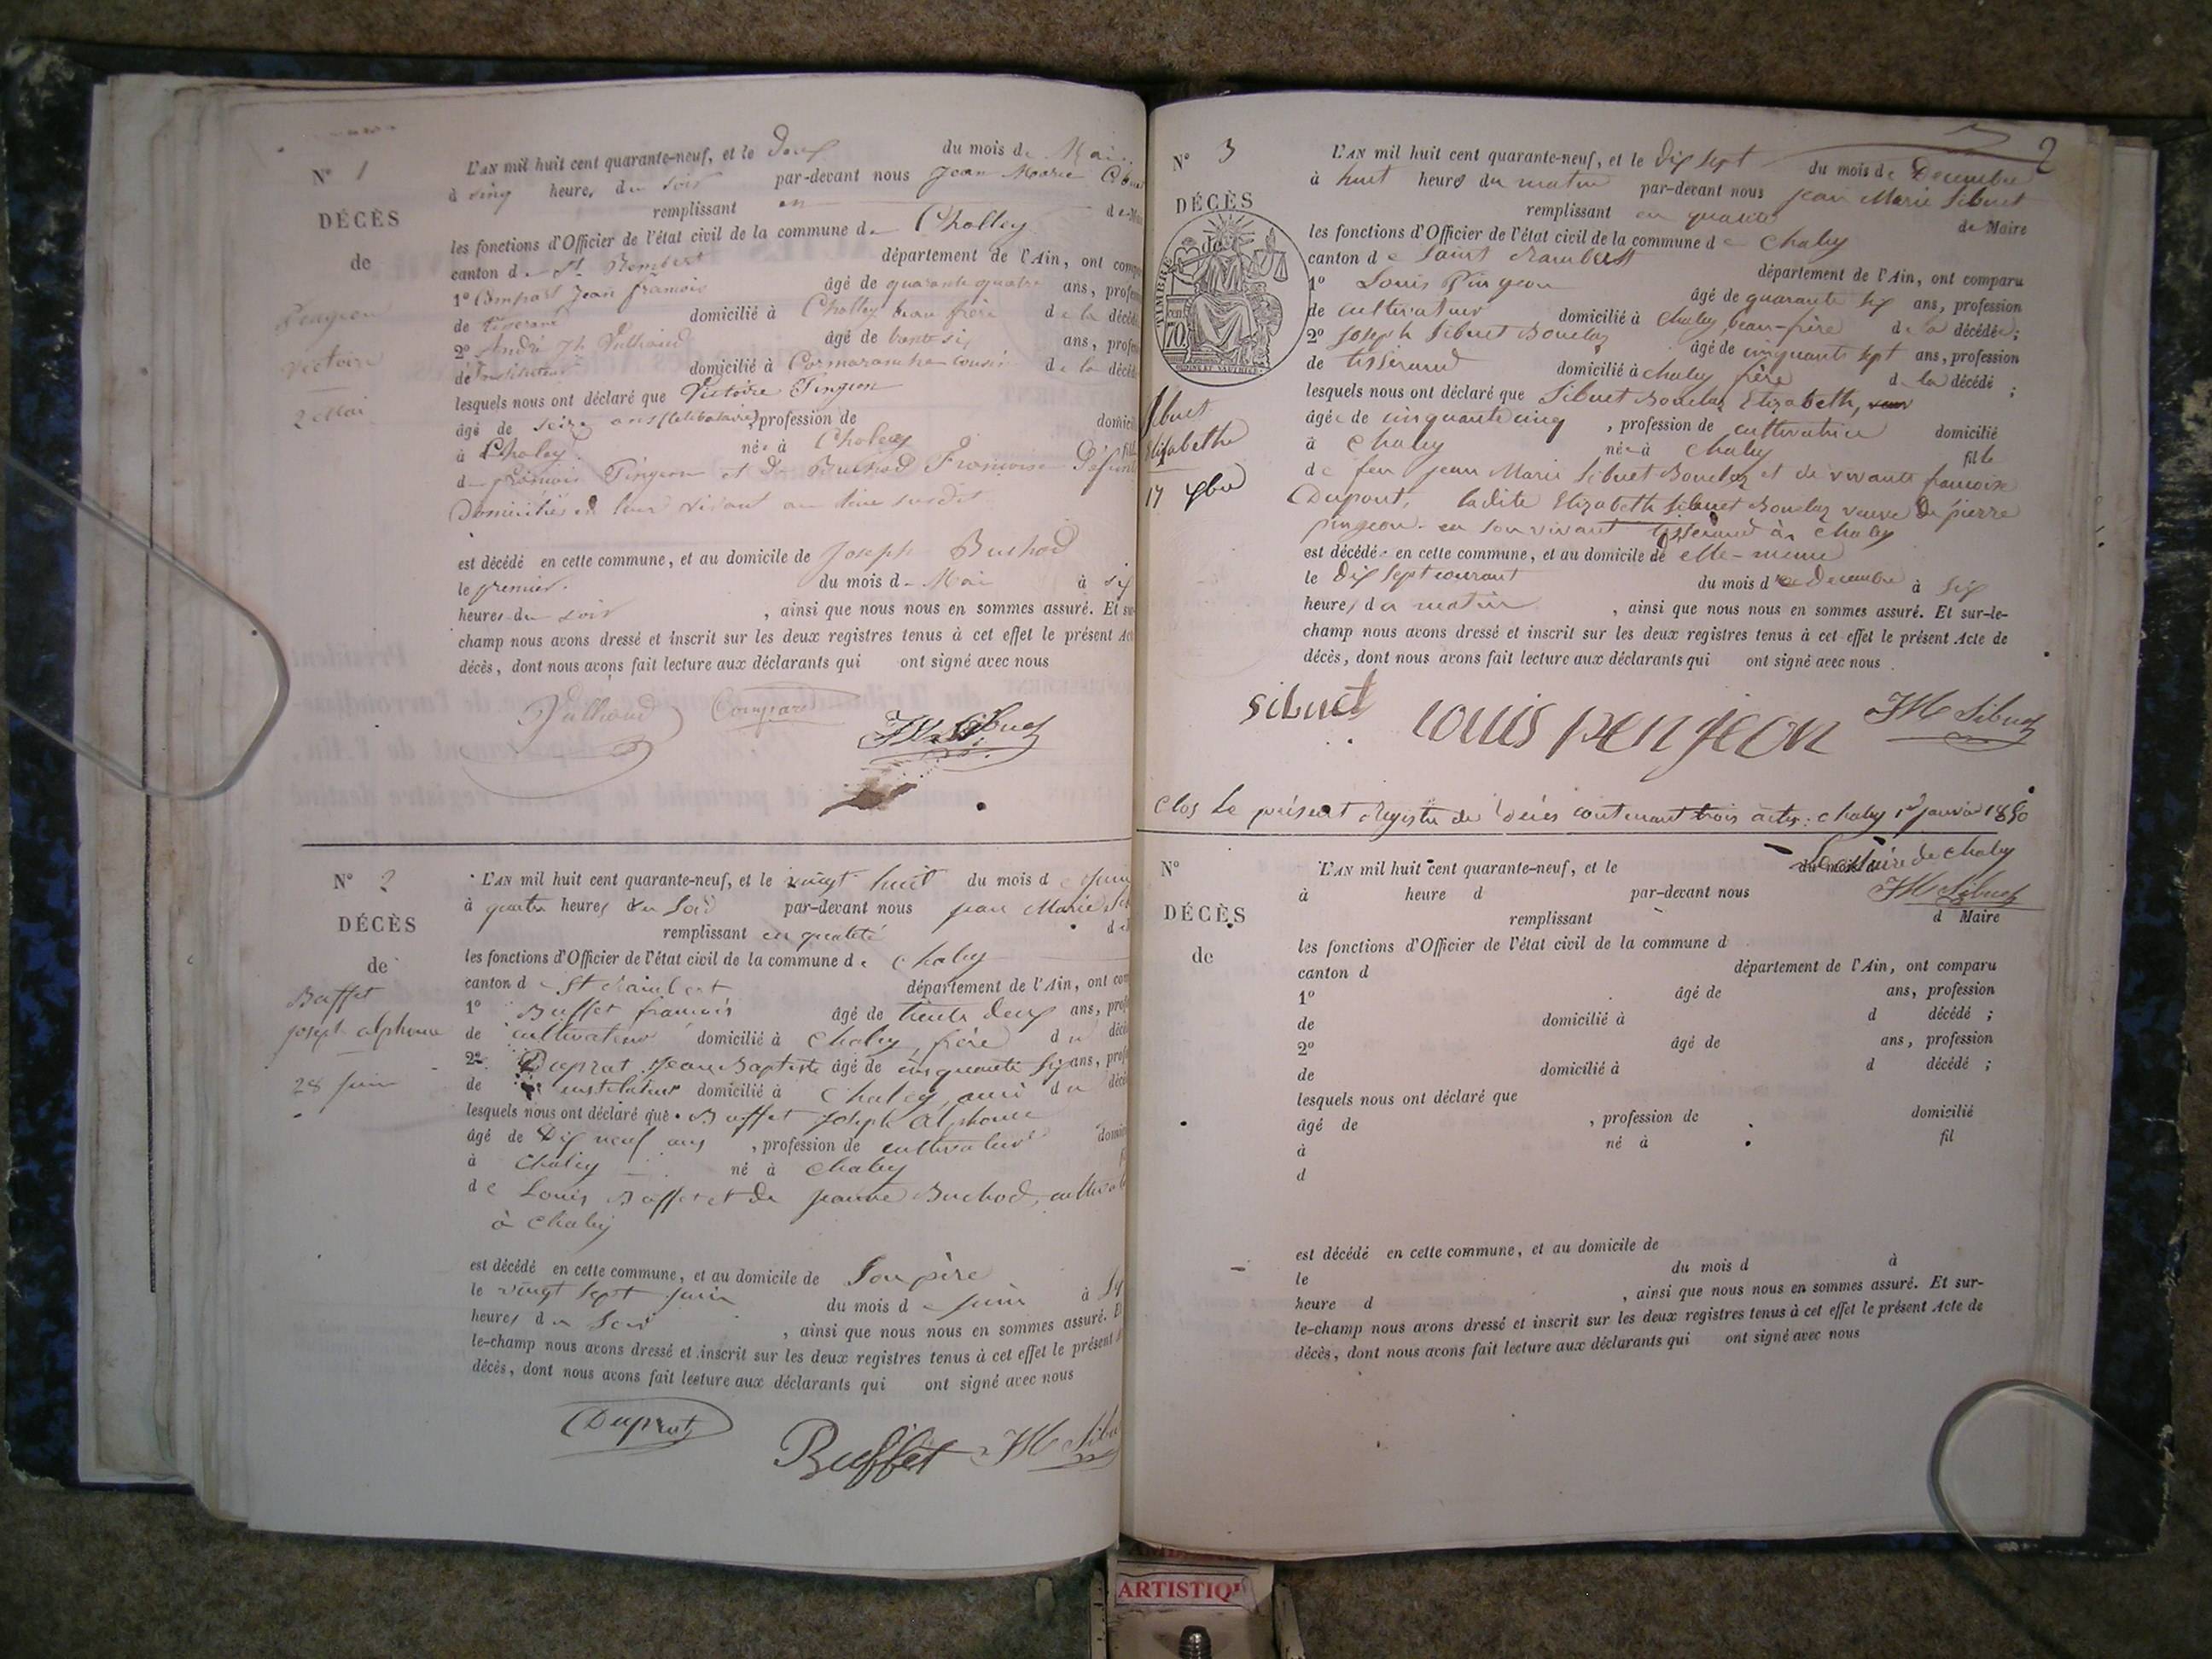 N° 1
DÉCÈS
de
Victoire
2 Mai
L'AN mil huit cent quarante-neuf, et le deux du mois de Mai
à cinq heures du soir par-devant nous Jean Marie
remplissant en
les fonctions d'Officier de l'état civil de la commune de Cholley
canton de St Rembert département de l'Ain, ont comp
1° Compart Jean françois âgé de quarante quatre ans, profe
de domicilié à Cholley beau frère de la décéd
2° André Jh Julliand âgé de trente six ans, profe
de Instituteur domicilié à Cormaranche cousin de la décéd
lesquels nous ont déclaré que Victoire Pingeon
âgé de seize ans (célibataire) profession de domici
à Choley née à Choley fil
de françois Pingeon et de Buchod Françoise Défunts
Domiciliés en leur vivant au lieu susdit
est décédé en cette commune, et au domicile de Joseph Buchod
le premier. du mois de Mai à six
heures du soir , ainsi que nous nous en sommes assuré. Et su
champ nous avons dressé et inscrit sur les deux registres tenus à cet effet le présent Acte
décès, dont nous avons fait lecture aux déclarants qui ont signé avec nous
Julliand Compart JM Sibuet
N° 2
DÉCÈS
de
Buffet
joseph alphonse
28 juin
L'AN mil huit cent quarante-neuf, et le vingt huit du mois de juin
à quatre heures du soir par-devant nous jean Marie Sib
remplissant en qualité de
les fonctions d'Officier de l'état civil de la commune de chaley
canton de St Rambert département de l'Ain, ont com
1° Buffet francois âgé de trente deux ans, prof
de cultivateur domicilié à chaley, frère du décéd
2° Duprat Jean Baptiste âgé de cinquante six ans, prof
de instituteur domicilié à chaley, ami du décéd
lesquels nous ont déclaré que Buffet joseph alphonse
âgé de Dix neuf ans , profession de cultivateur domici
à Chaley né à chaley
de Louis Buffet et de jeanne Buchod, cultivat
à chaley
est décédé en cette commune, et au domicile de son père
le vingt sept juin du mois de juin à
heures du soir , ainsi que nous nous en sommes assuré. E
le-champ nous avons dressé et inscrit sur les deux registres tenus à cet effet le présent
décès, dont nous avons fait lecture aux déclarants qui ont signé avec nous
Duprat Buffet JM Sibu
2
N° 3
DÉCÈS
de
TIMBRE
70
Sibuet
Elizabethe
17 xbre
L'AN mil huit cent quarante-neuf, et le dix sept du mois de Decembre
à huit heures du matin par-devant nous jean Marie Sibuet
remplissant en qualité de Maire
les fonctions d'Officier de l'état civil de la commune de chaley
canton de saint Rambert département de l'Ain, ont comparu
1° Louis Pingeon âgé de quarante six ans, profession
de cultivateur domicilié à chaley beau-frère de la décédée ;
2° joseph Sibuet Bouclaz âgé de cinquante sept ans, profession
de tisserand domicilié à chaley frère de la décédé ;
lesquels nous ont déclaré que Sibuet Bouclaz Elizabeth, ;
âgée de cinquante cinq , profession de cultivatrice domicilié
à Chaley née à Chaley fille
de feu jean Marie Sibuet Bouclaz et de vivante francoise
Dupont, ladite Elizabeth Sibuet Bouclaz veuve de pierre
pingeon en son vivant tisserand à chaley
est décédée en cette commune, et au domicile de elle-meme
le dix sept courant du mois de decembre à six
heures du matin , ainsi que nous nous en sommes assuré. Et sur-le-
champ nous avons dressé et inscrit sur les deux registres tenus à cet effet le présent Acte de
décès, dont nous avons fait lecture aux déclarants qui ont signé avec nous
sibuet louis penjeon JM Sibuet
Clos Le présent Registre de décès contenant trois actes. chaley 1er janvier 1850
Le Maire de chaley
JM Sibuet
N°
DÉCÈS
de
L'AN mil huit cent quarante-neuf, et le du mois d
à heure d par-devant nous
remplissant d Maire
les fonctions d'Officier de l'état civil de la commune d
canton d département de l'Ain, ont comparu
1° âgé de ans, profession
de domicilié à d décédé ;
2° âgé de ans, profession
de domicilié à d décédé ;
lesquels nous ont déclaré que
âgé de , profession de domicilié
à né à fil
d
est décédé en cette commune, et au domicile de
le du mois d à
heure d , ainsi que nous nous en sommes assuré. Et sur-
le-champ nous avons dressé et inscrit sur les deux registres tenus à cet effet le présent Acte de
décès, dont nous avons fait lecture aux déclarants qui ont signé avec nous
ARTISTIQ